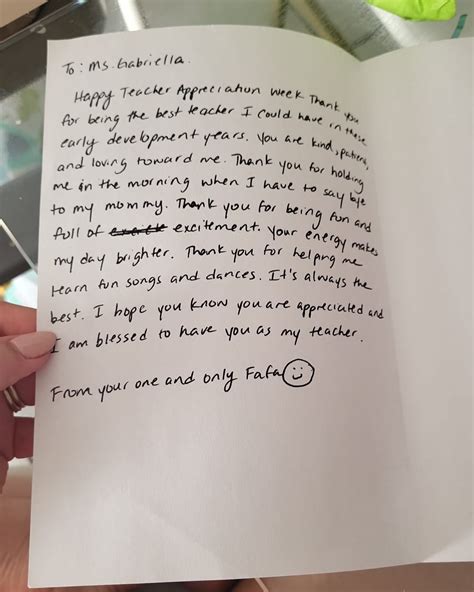 To: Ms. Gabriella.
Happy Teacher Appreciation Week Thank you
for being the best teacher I could have in these
early development years. You are kind, patient,
and loving toward me. Thank you for holding
me in the morning when I have to say bye
to my mommy. Thank you for being fun and
full of excitement. Your energy makes
my day brighter. Thank you for helping me
learn fun songs and dances. It's always the
best. I hope you know you are appreciated and
I am blessed to have you as my teacher.
From your one and only Fafa